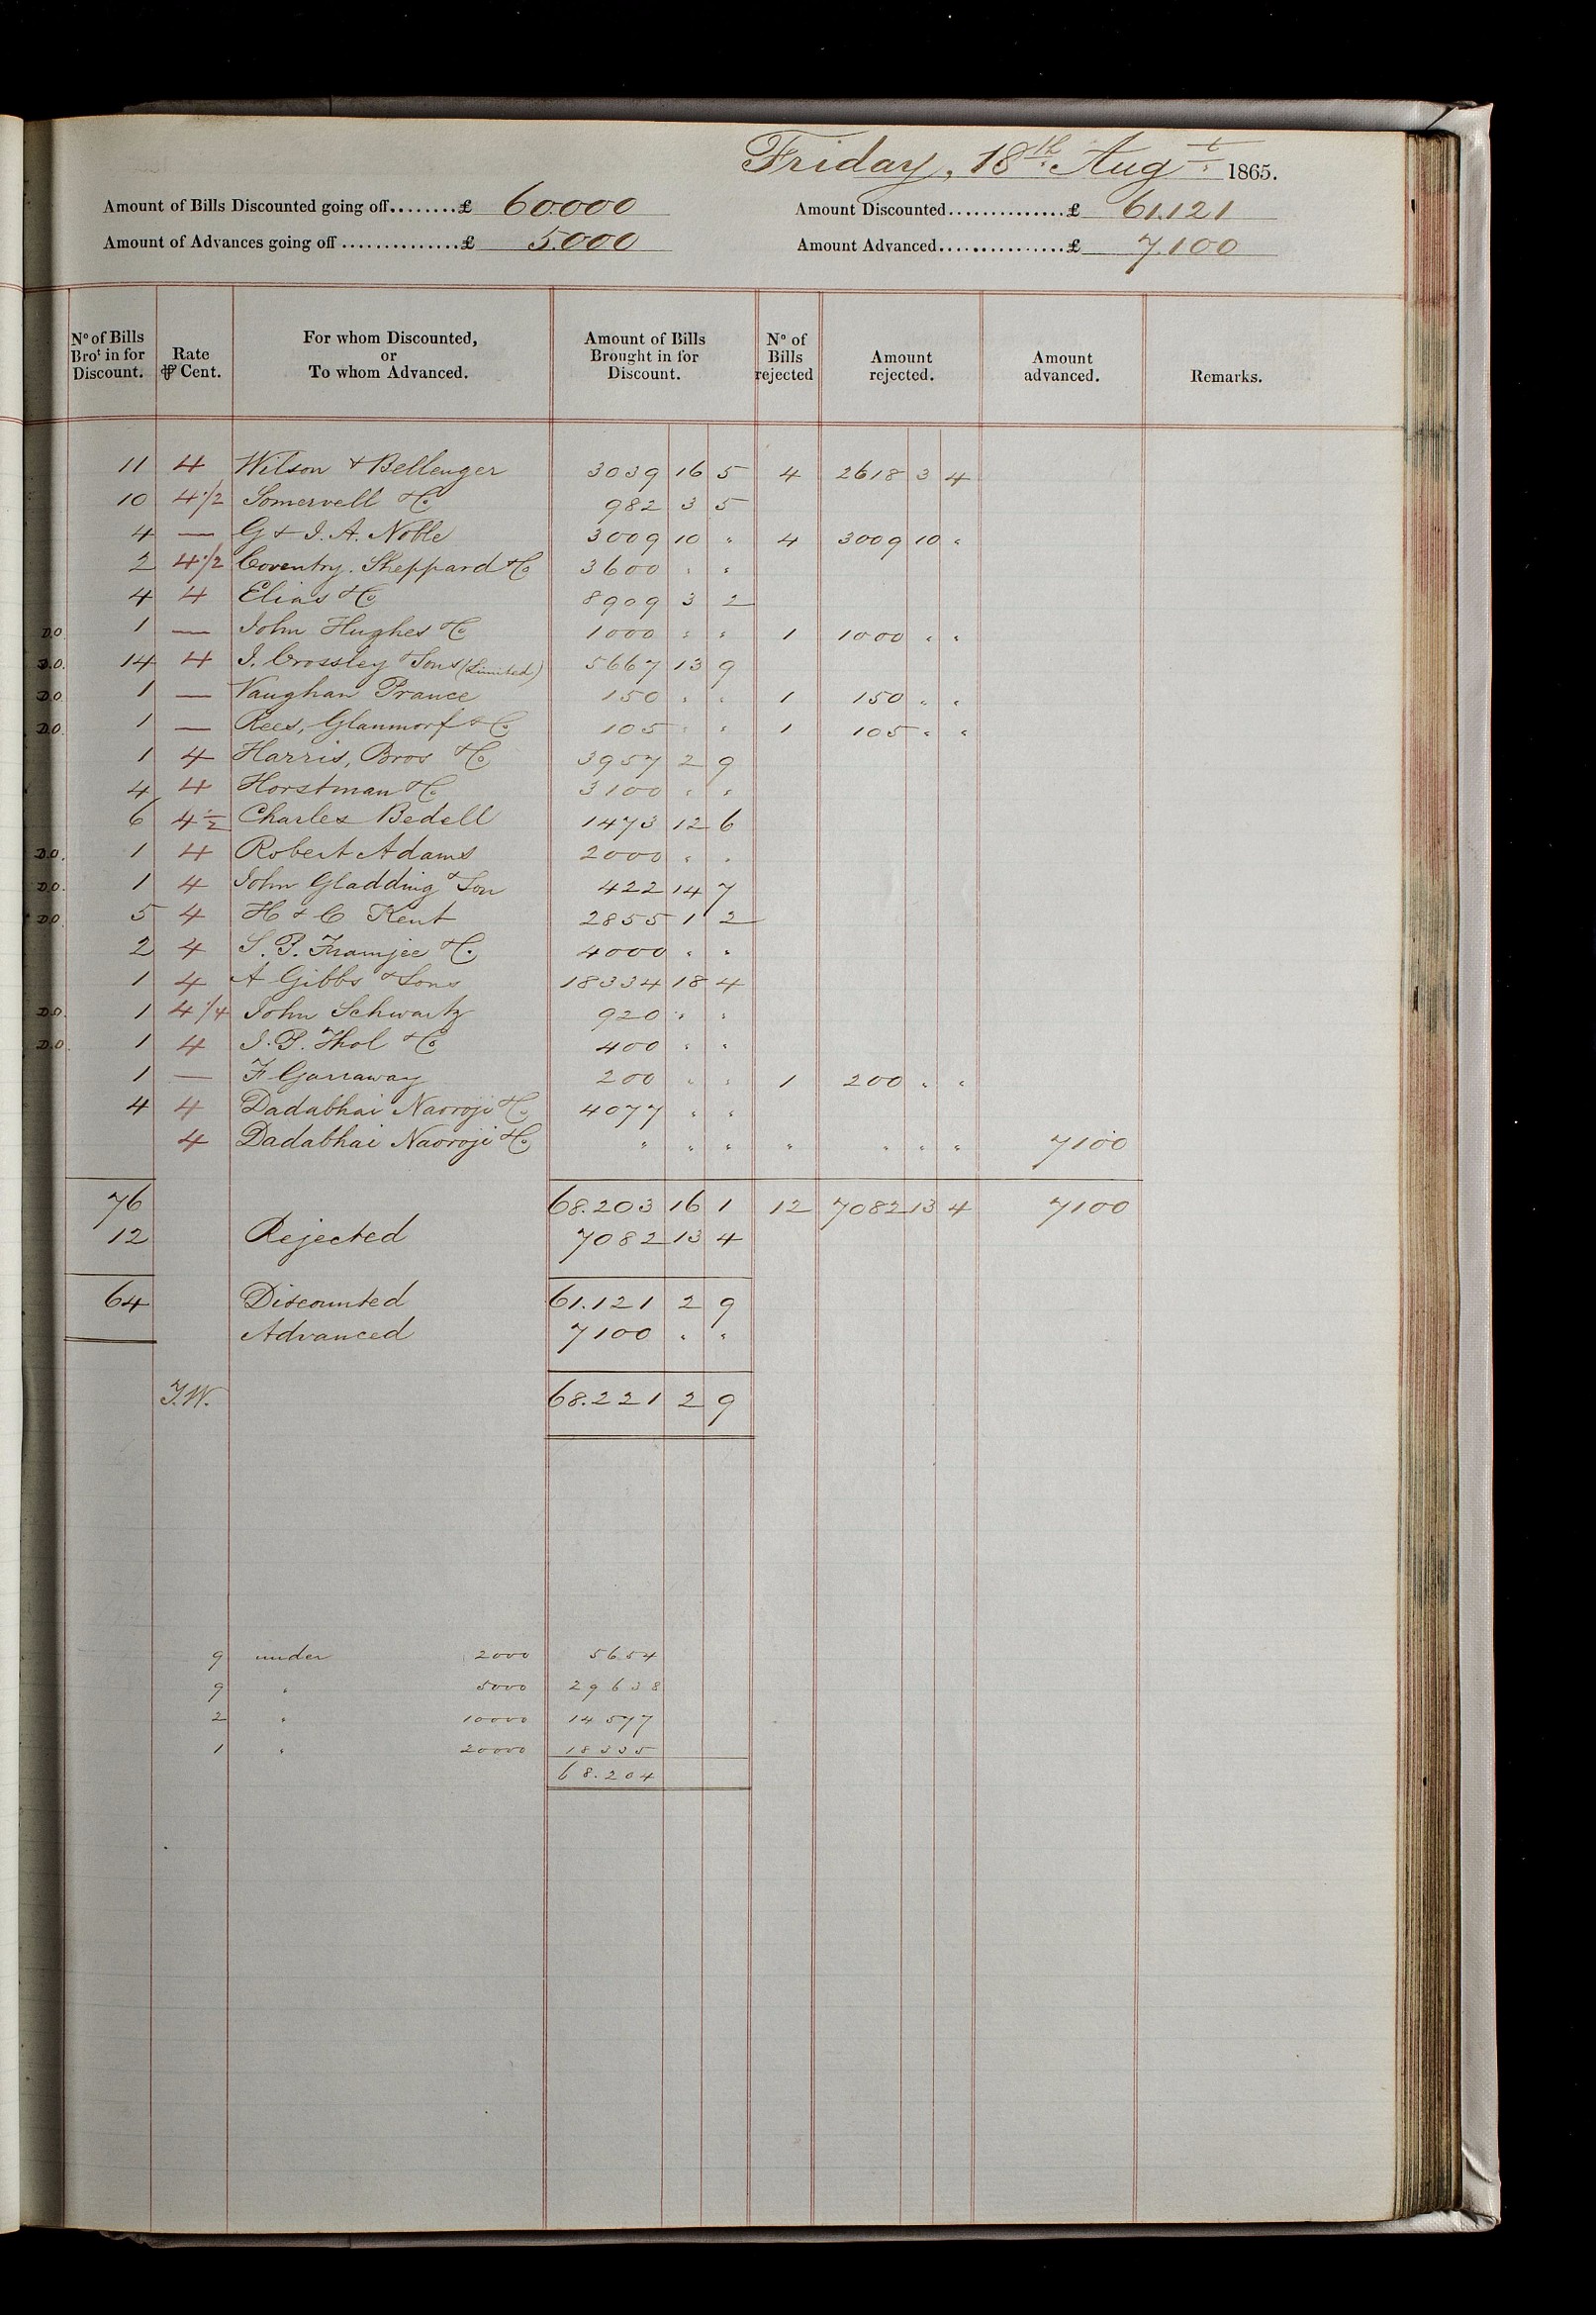 Friday, 18th Augt 1865.
Amount of Bills Discounted going off........£ 60.000 Amount Discounted..............£ 61.121
Amount of Advances going off...............£ 5.000 Amount Advanced................£ 7.100
No of Bills Brot in for Discount. Rate ⅌ Cent. For whom Discounted, or To whom Advanced. Amount of Bills Brought in for Discount. No of Bills rejected Amount rejected. Amount advanced. Remarks.
11 4 Wilson & Bellenger 3039 16 5 4 2618 3 4
10 4 1/2 Somervell & Co 982 3 5
4 — G & I. A. Noble 3009 10 " 4 3009 10 "
2 4 1/2 Coventry. Sheppard & Co 3600 " "
4 4 Elias & Co 8909 3 2
D.O. 1 — John Hughes & Co 1000 " " 1 1000 " "
D.O. 14 4 J. Crossley & Sons (Limited) 5667 13 9
D.O. 1 — Vaughan Prance 150 " " 1 150 " "
D.O. 1 — Rees, Glanmorf & Co 105 " " 1 105 " "
1 4 Harris, Bros & Co 3957 2 9
4 4 Horstman & Co 3100 " "
6 4 1/2 Charles Bedell 1473 12 6
D.O. 1 4 Robert Adams 2000 " "
D.O. 1 4 John Gladding & Son 422 14 7
D.O. 5 4 H & C Kent 2855 1 2
2 4 S. P. Framjee & Co. 4000 " "
1 4 A Gibbs & Sons 18334 18 4
D.O. 1 4 1/4 John Schwartz 920 " "
D.O. 1 4 J. P. Thol & Co 400 " "
1 — F Garraway 200 " " 1 200 " "
4 4 Dadabhai Naoroji & Co. 4077 " "
4 Dadabhai Naoroji & Co. " " " " " " " 7100
76 68.203 16 1 12 7082 13 4 7100
12 Rejected 7082 13 4
64 Discounted 61.121 2 9
Advanced 7100 " "
J.W. 68.221 2 9
9 under 2000 5654
9 " 5000 29638
2 " 10000 14577
1 " 20000 18335
68.204